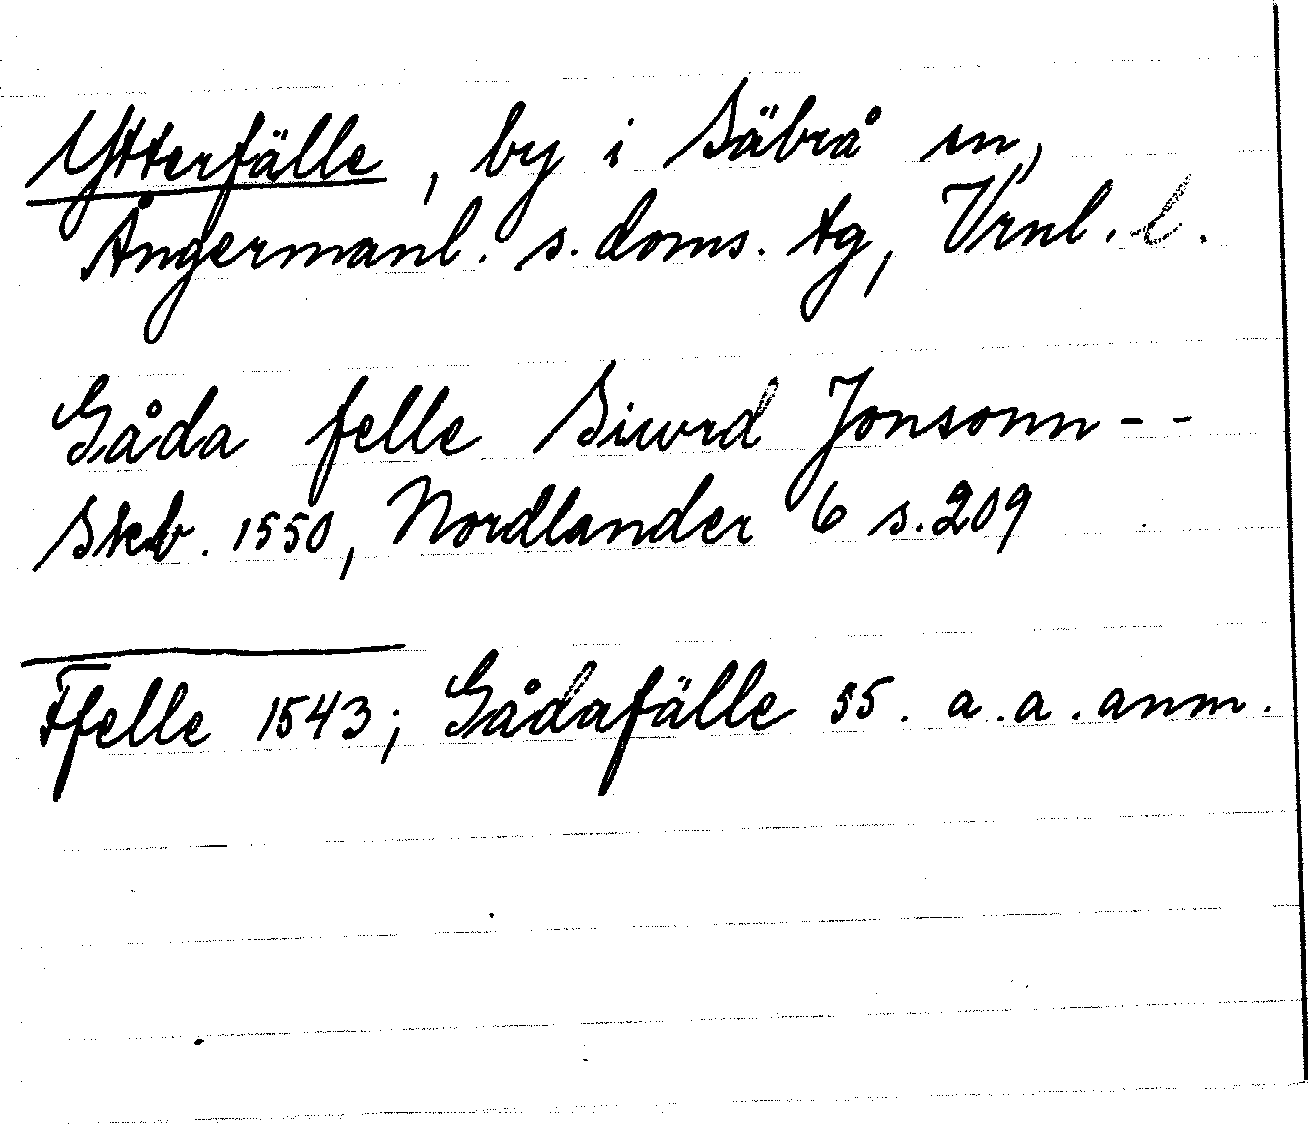 Ytterfälle, by i Säbrå sn,
Ångermanl. s. doms. tg, Vrnl. l.
Gåda felle Siurd Jonsonn - -
Skb. 1550, Nordlander 6 s. 209
Ffelle 1543; Gådafälle 55. a. a. anm.